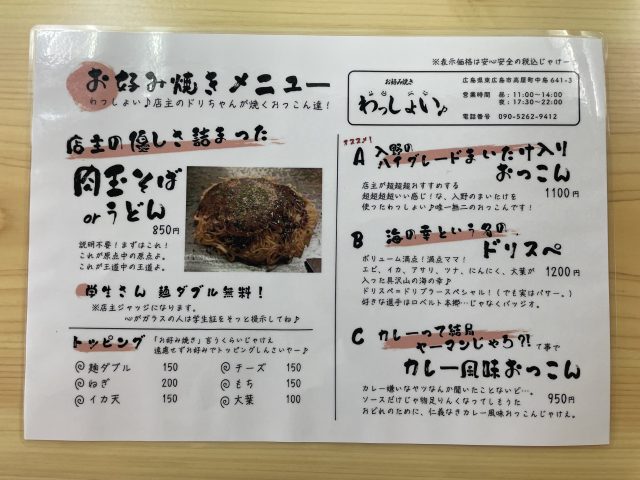 お好み焼きメニュー
わっしょい♪店主のドリちゃんが焼くおっこん達！
店主の優しさ詰まった
肉玉そば
orうどん
850円
説明不要！まずはこれ！
これが原点中の原点よ。
これが王道中の王道よ。
学生さん 麺ダブル無料！
※店主ジャッジになります。
心がガラスの人は学生証をそっと提示してね♪
トッピング
「お好み焼き」言うくらいじゃけえ
遠慮せずお好みでトッピングしんさいやー♪
麺ダブル 150
ねぎ 200
イカ天 150
チーズ 150
もち 150
大葉 100
※表示価格は安心安全の税込じゃけー
お好み焼き
わっしょい♪
広島県東広島市高屋町中島 641-3
営業時間 昼：11:00〜14:00
夜：17:30〜22:00
電話番号 090-5262-9412
オススメ！
A 入野の
ハイグレードまいたけ入り
おっこん
1100円
店主が超超超おすすめする
超超超超いい感じ！な、入野のまいたけを
使ったわっしょい♪唯一無二のおっこんです！
B 海の幸という名の
ドリスペ
1200円
ボリューム満点！満点ママ！
エビ、イカ、アサリ、ツナ、にんにく、大葉が
入った具沢山の海の幸♪
ドリスペ＝ドリブラースペシャル！（でも実はパサー。）
好きな選手はロベルト本郷…じゃなくバッジオ。
C カレーって結局
ヤーマンじゃろ?!て事で
カレー風味おっこん
950円
カレー嫌いなヤツなんか聞いたことないど…。
ソースだけじゃ物足りんくなってしもうた
おどれのために、仁義なきカレー風味おっこんじゃけえ。